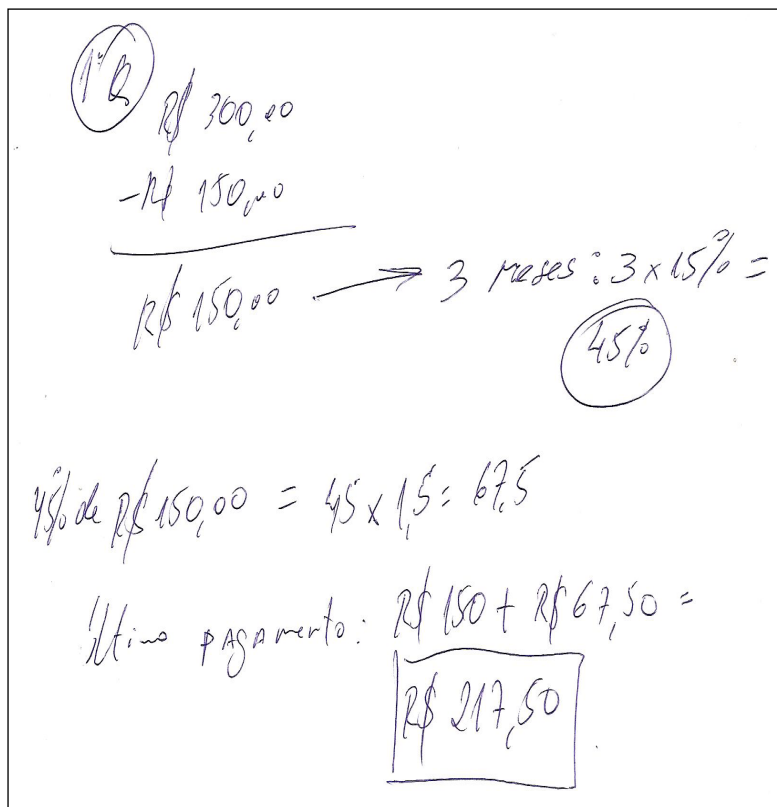 1ª Q
R$ 300,00
-R$ 150,00
R$ 150,00 → 3 meses: 3 x 15% =
45%
45% de R$ 150,00 = 45 x 1,5 = 67,5
Último pagamento: R$ 150 + R$ 67,50 =
R$ 217,50